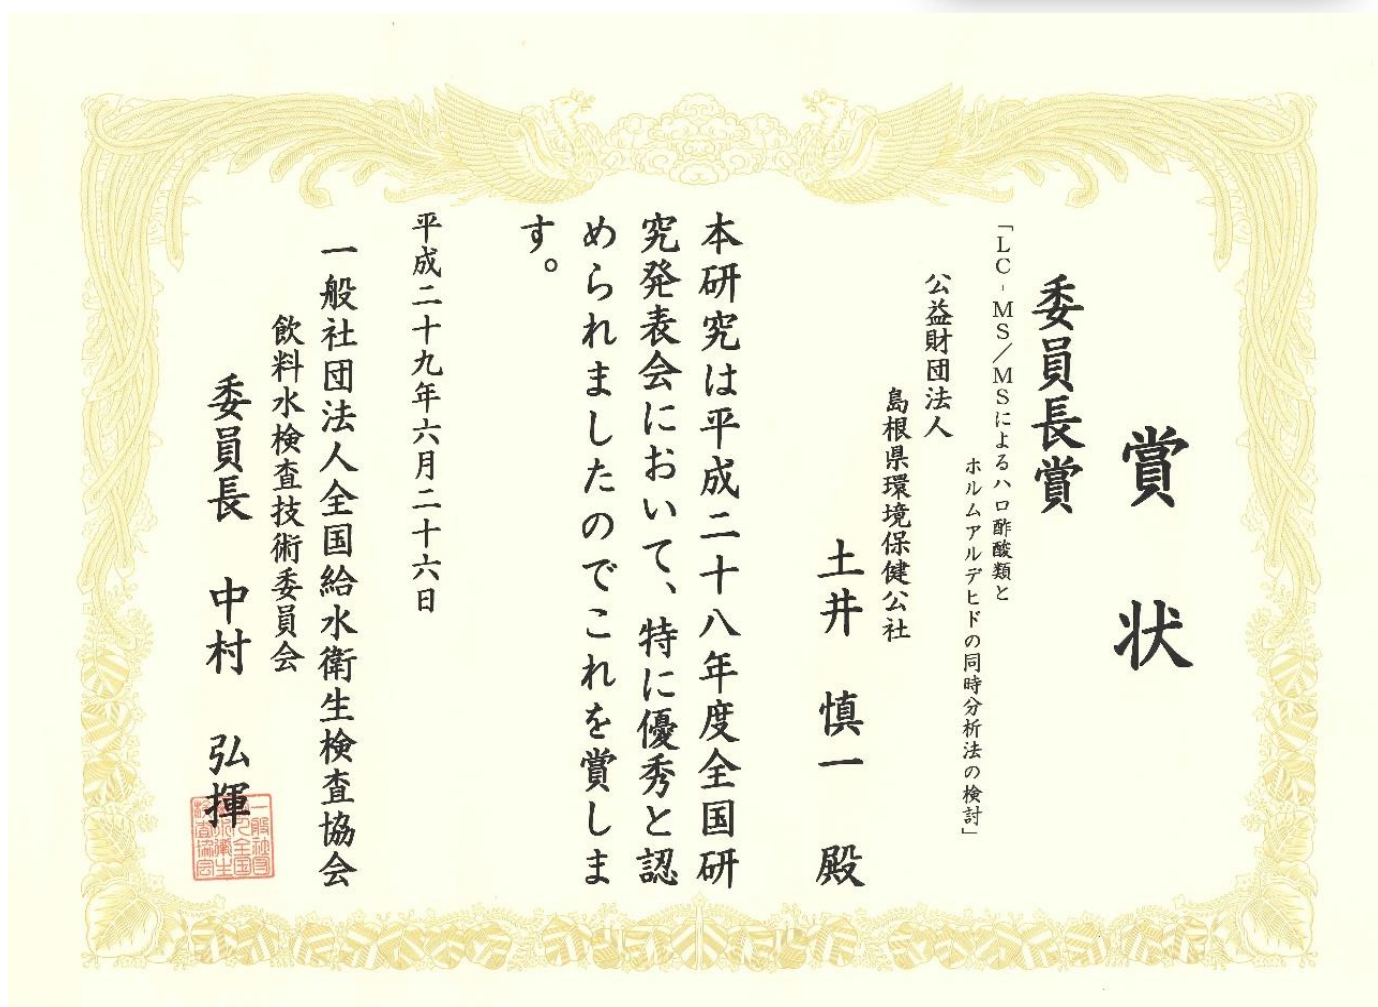 賞状
委員長賞
「LC-MS/MSによるハロ酢酸類と
ホルムアルデヒドの同時分析法の検討」
公益財団法人
島根県環境保健公社
土井 慎一 殿
本研究は平成二十八年度全国研
究発表会において、特に優秀と認
められましたのでこれを賞しま
す。
平成二十九年六月二十六日
一般社団法人全国給水衛生検査協会
飲料水検査技術委員会
委員長 中村 弘揮